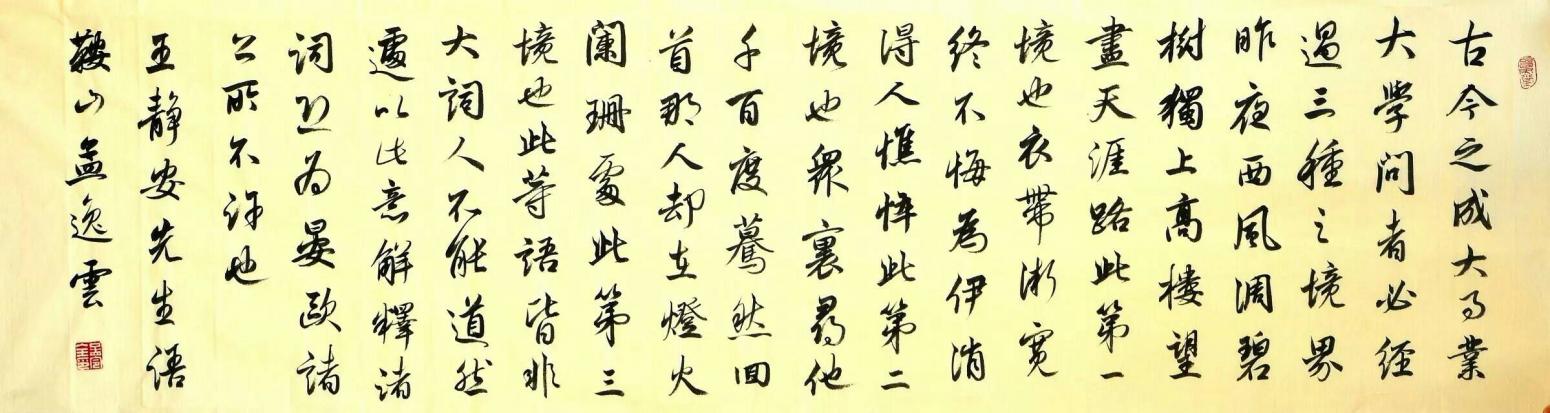 古今之成大事業
大学問者必经
過三種之境界
昨夜西風凋碧
樹獨上高樓望
盡天涯路此第一
境也衣帶漸寬
终不悔為伊消
得人憔悴此第二
境也衆裏尋他
千百度驀然回
首那人却在燈火
闌珊處此第三
境也此等語皆非
大詞人不能道然
遽以此意解釋诸
詞恐为晏歐諸
公所不许也
王静安先生语
鞍山孟逸雲